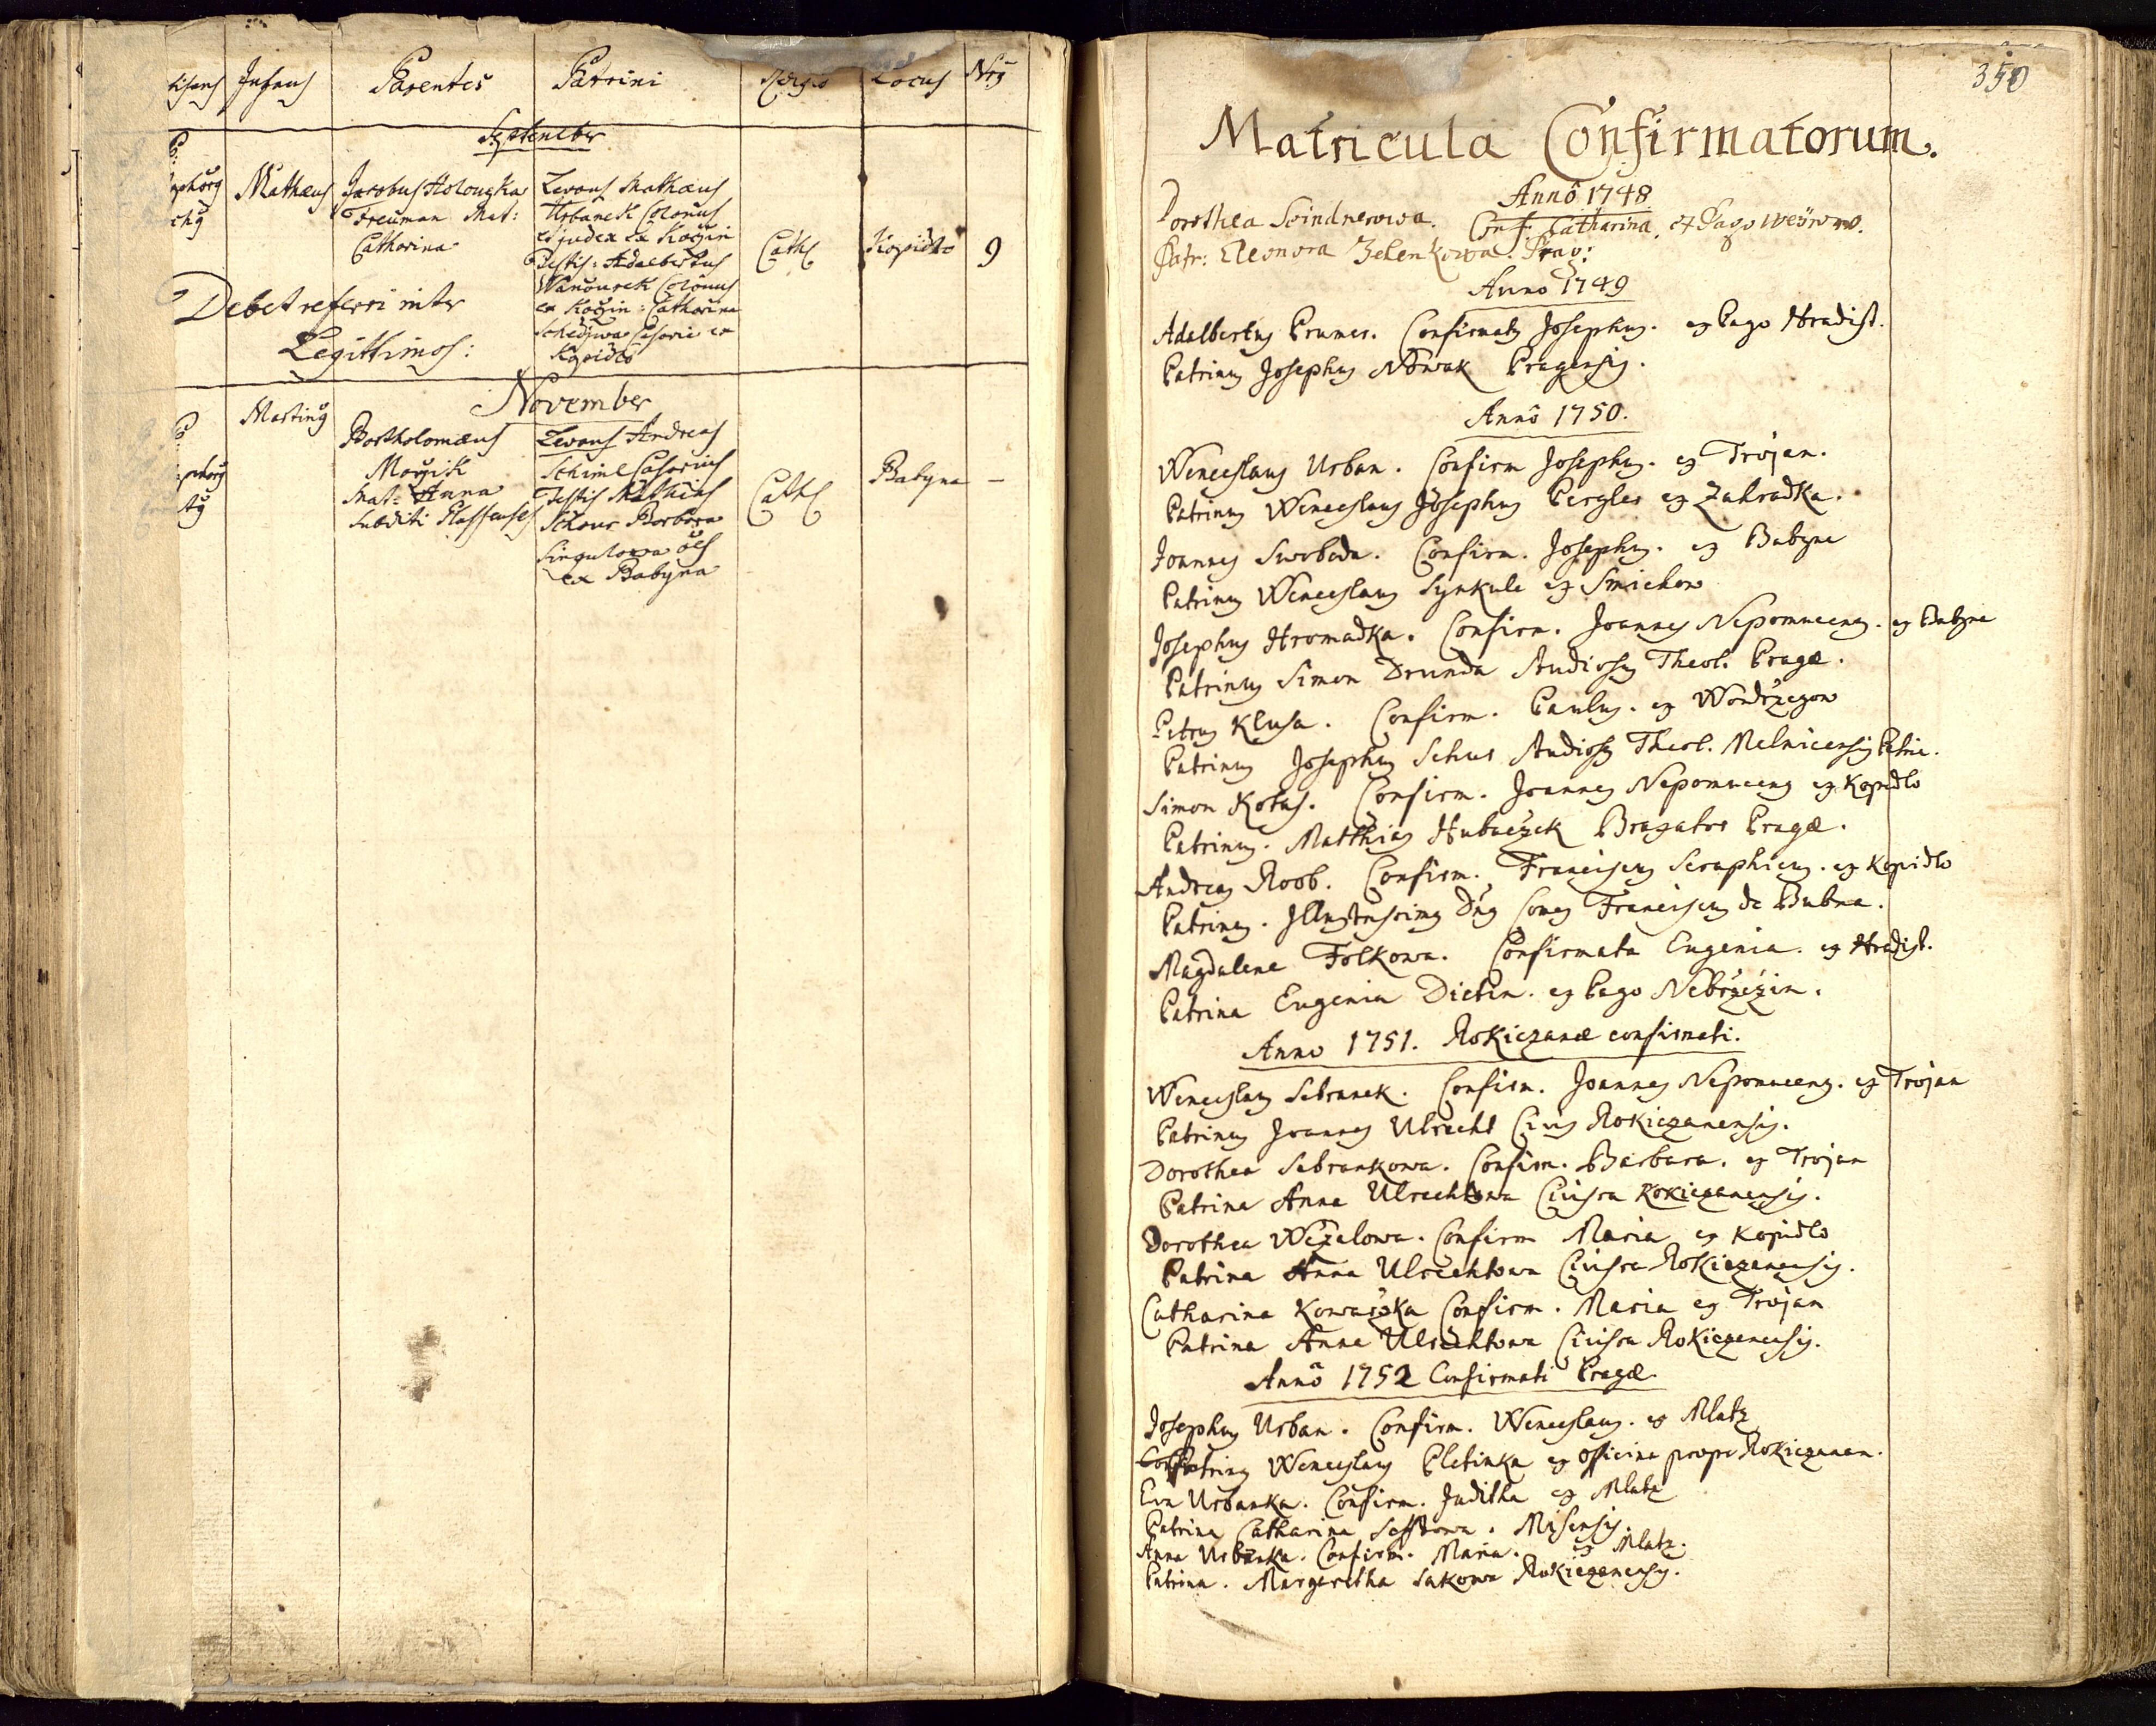 Infans Parentes Patrini Religio Locus Nrg
September
Mathæus Jacobus Holougka Levans Mathæus
Freuman Mat: Urbanek Colonus
Catharina et judex ex Kogin Cath Kopidlo 9
Testis: Adalbertus
Wanourek Colonus
Debet referri inter ex Kogin: Catharina
Legittimos:
Kopidlo
November
Martinus
Bartholomæus Levans Andreas
Schiml Casarius
Mat: Anna Testis Mathias Cath Babyna -
Subditi Plassenses Barbora
ex Babyna
350
Matricula Confirmatorum.
Annô 1748
Dorothea Scindnerowa. Conf. Catharina. ex Pago
Patr: Eleonora Zelenkowa. Prag:
Anno 1749
Adalbertus Prunner. Confirmatus Josephus. ex Pago Hradist.
Patrinus Josephus Nowak Pragensis.
Annô 1750.
Wenceslaus Urban. Confirm Josephus. ex Trojan.
Patrinus Wenceslaus Josephus Pergler ex Zahradka.
Joannes Swoboda. Confirm. Josephus. ex Babyna
Patrinus Wenceslaus Synkule ex Smichow
Josephus Hromadka. Confirm. Joannes Nepomucenus. ex Babyna
Patrinus Simon Drunda Studiosus Theol. Pragæ.
Petrus Klusa. Confirm. Paulus. ex Wondrzegow
Patrinus Josephus Schus Studiosus Theol. Melnicensis Patria.
Simon Kotas. Confirm. Joannes Nepomucenus ex Kopidlo
Patrinus. Matthias Hubaczek Pragæ.
Andreas Roob. Confirm. Franciscus Seraphicus. ex Kopidlo
Patrinus. Illustrissimus Dnus Comes Franciscus de Bubna.
Magdalena Folkowa. Confirmata Eugenia. ex Hradist.
Patrina Eugenia Dietin. ex Pago Nebrzezin.
Anno 1751. Rokiczanæ confirmati.
Wenceslaus Sebranek. Confirm. Joannes Nepomucenus. ex Trojan
Patrinus Joannes Ulrecht Civis Rokiczanensis.
Dorothea Sebrankowa. Confirm. Barbara. ex Trojan
Patrina Anna Ulrechtowa Civissa Rokiczanensis.
Dorothea Wezelowa. Confirm Maria ex Kopidlo
Patrina Anna Ulrechtowa Civissa Rokiczanensis.
Catharina Kowarzka Confirm. Maria ex Trojan
Patrina Anna Ulrechtowa Civissa Rokiczanensis.
Annô 1752 Confirmati Pragæ.
Josephus Urban. Confirm. Wenceslaus. ex Mlatz
Patrinus Wenceslaus Pletinka ex Officina prope Rokiczanam.
Eva Urbanka. Confirm. Juditha ex Mlatz
Patrina Catharina Misensis.
Anna Urbanka. Confirm. Maria. ex Mlatz.
Patrina. Margaretha Sakowa Rokiczanensis.